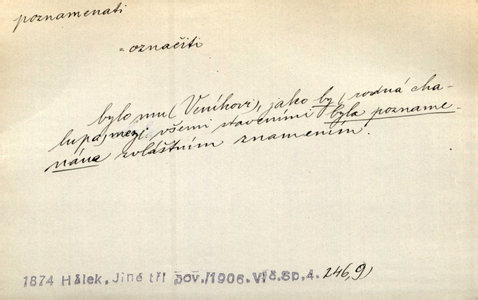 poznamenati
= označiti
bylo mu (Veníkovi), jako by rodná cha-
lupa mezi všemi staveními byla pozname-
nána zvláštním znamením.
1874 Hálek, Jiné tři pov./1906.V.č.sp.4. 246,9)